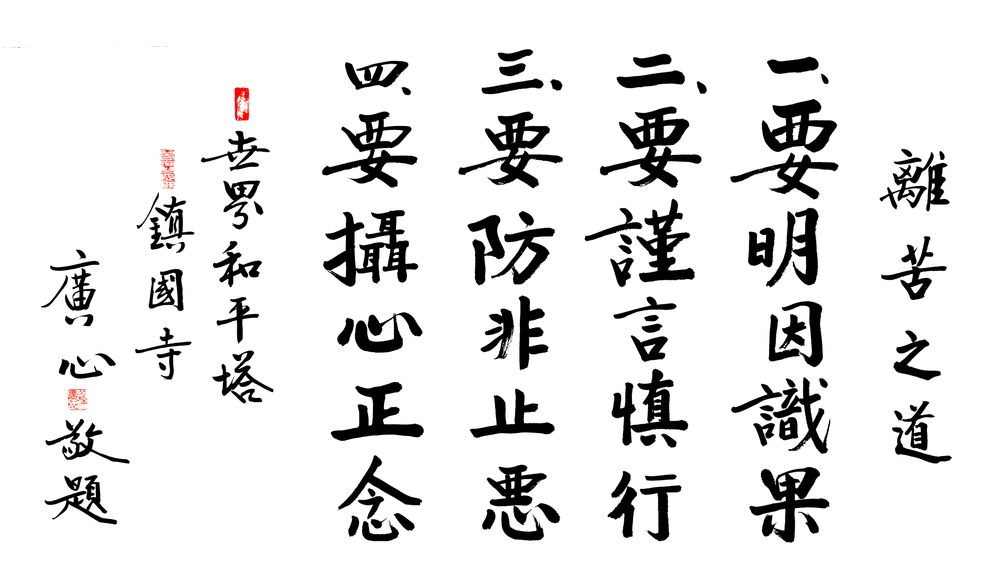 離苦之道
一、要明因識果
二、要謹言慎行
三、要防非止悪
四、要攝心正念
世界和平塔
鎮國寺
廣心敬題